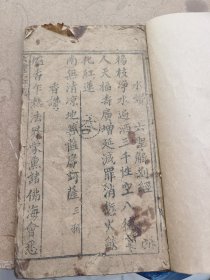 水讚
楊枝淨水遍洒三千性空八德利
人天福壽廣增延滅罪消愆火燄
化紅蓮
南無清凉地菩薩摩訶薩 三稱
香讚
爐香乍爇法界蒙熏諸佛海會悉